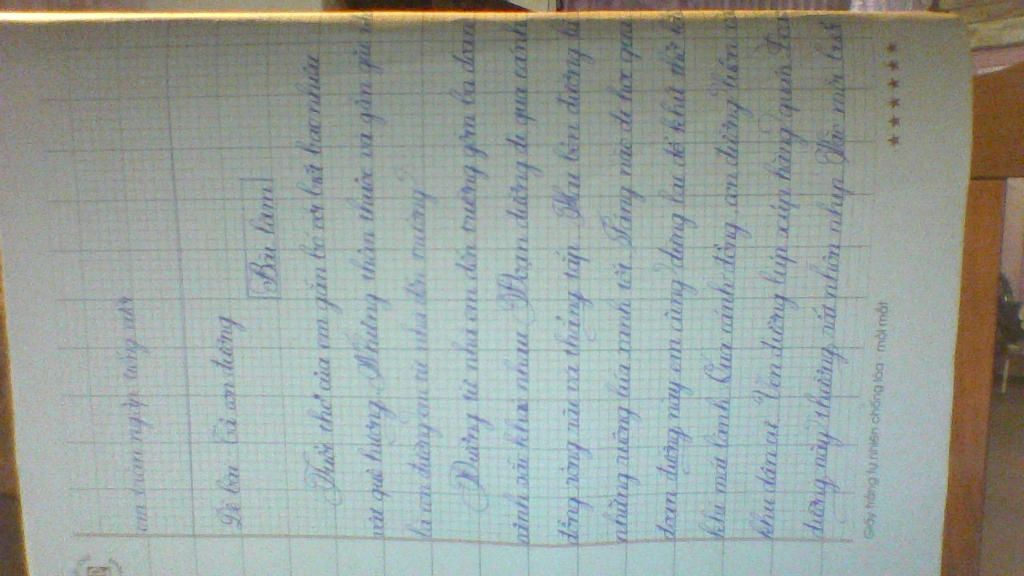 em tràn ngập tiếng
Đề bài: Tả con đường
Bài làm
Tuổi thơ của em gắn bó với biết bao nhiêu
vật quê hương. Nhưng thân thuộc và gần gũi
là con đường em từ nhà đến trường
Đường từ nhà em đến trường gồm ba đoạn
cảnh sắc khác nhau. Đoạn đường đi qua cánh
đồng rộng rãi và thẳng tắp. Hai bên đường là
những ruộng lúa xanh tốt. Sáng nào đi học qua
đoạn đường này em cũng dừng lại để khử thở k
khí mát lành. Qua cánh đồng, con đường hiền
khu dân cư. Ven đường lớp xếp hàng
đường này thường rất nhộn nhịp.
Giấy trắng tự nhiên chống lóa - mỏi mắt